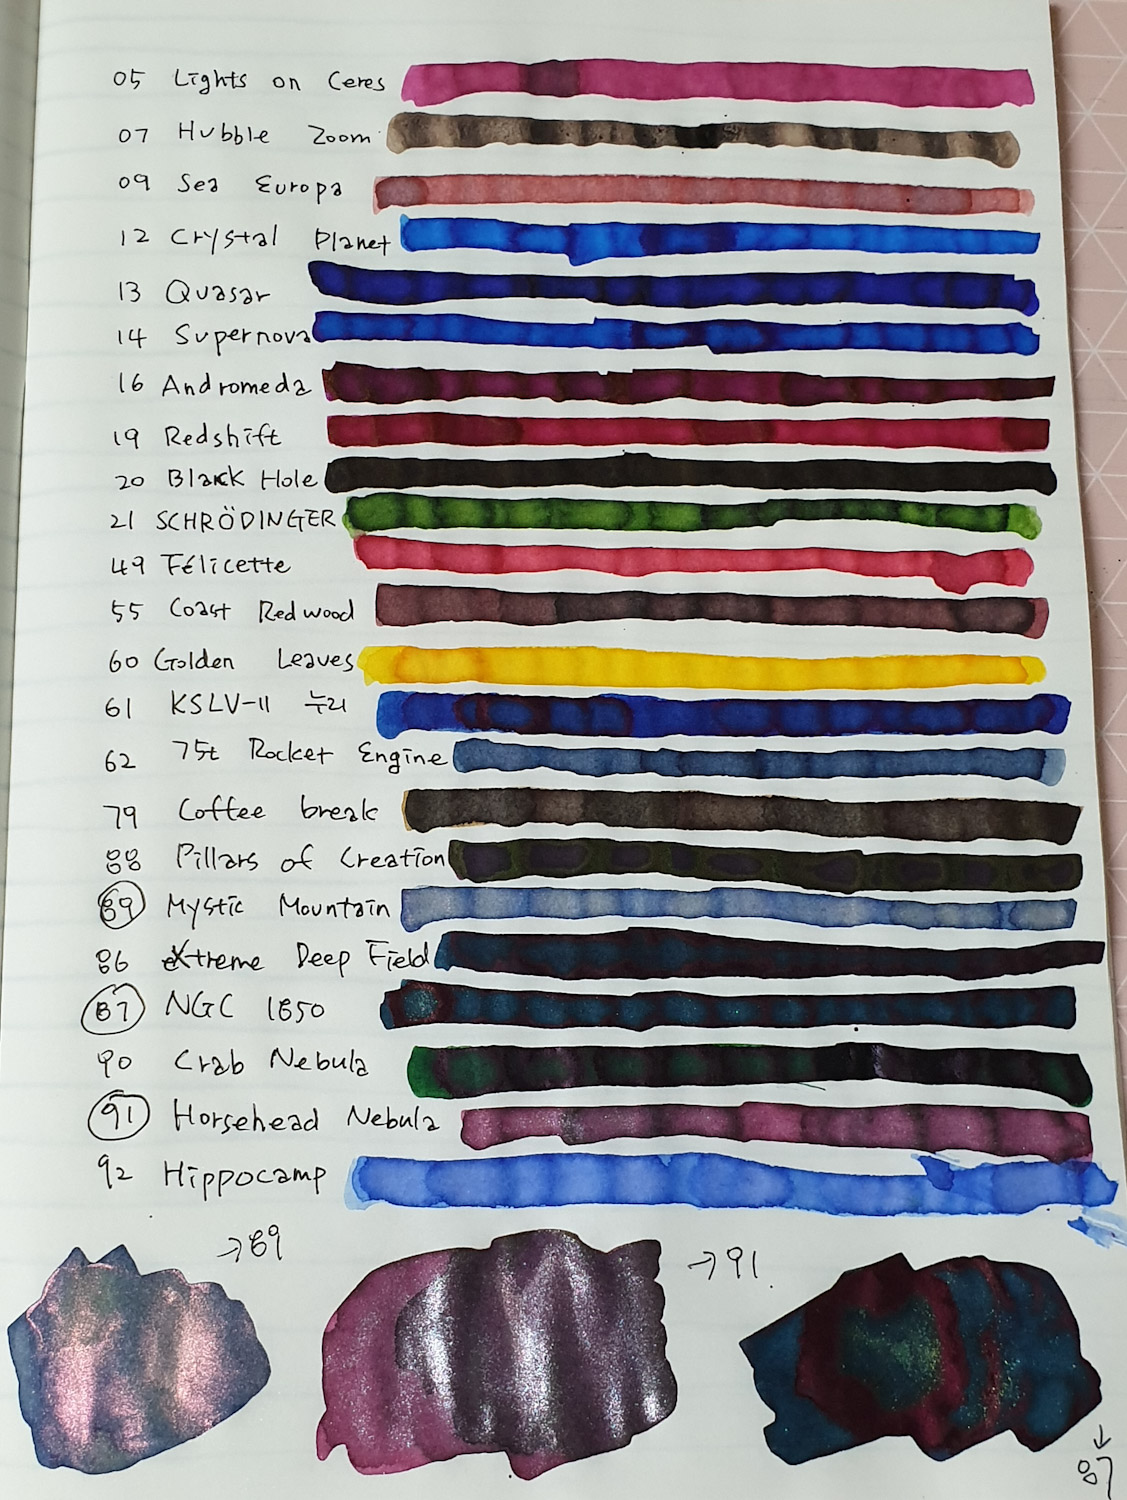 05 Lights on Ceres
07 Hubble Zoom
09 Sea Europa
12 Crystal Planet
13 Quasar
14 Supernova
16 Andromeda
19 Redshift
20 Black Hole
21 SCHRÖDINGER
49 Félicette
55 Coast Redwood
60 Golden Leaves
61 KSLV-II 누리
62 75t Rocket Engine
79 Coffee break
88 Pillars of Creation
89 Mystic Mountain
86 eXtreme Deep Field
87 NGC 1850
90 Crab Nebula
91 Horsehead Nebula
92 Hippocamp
→89
→91.
↓
87